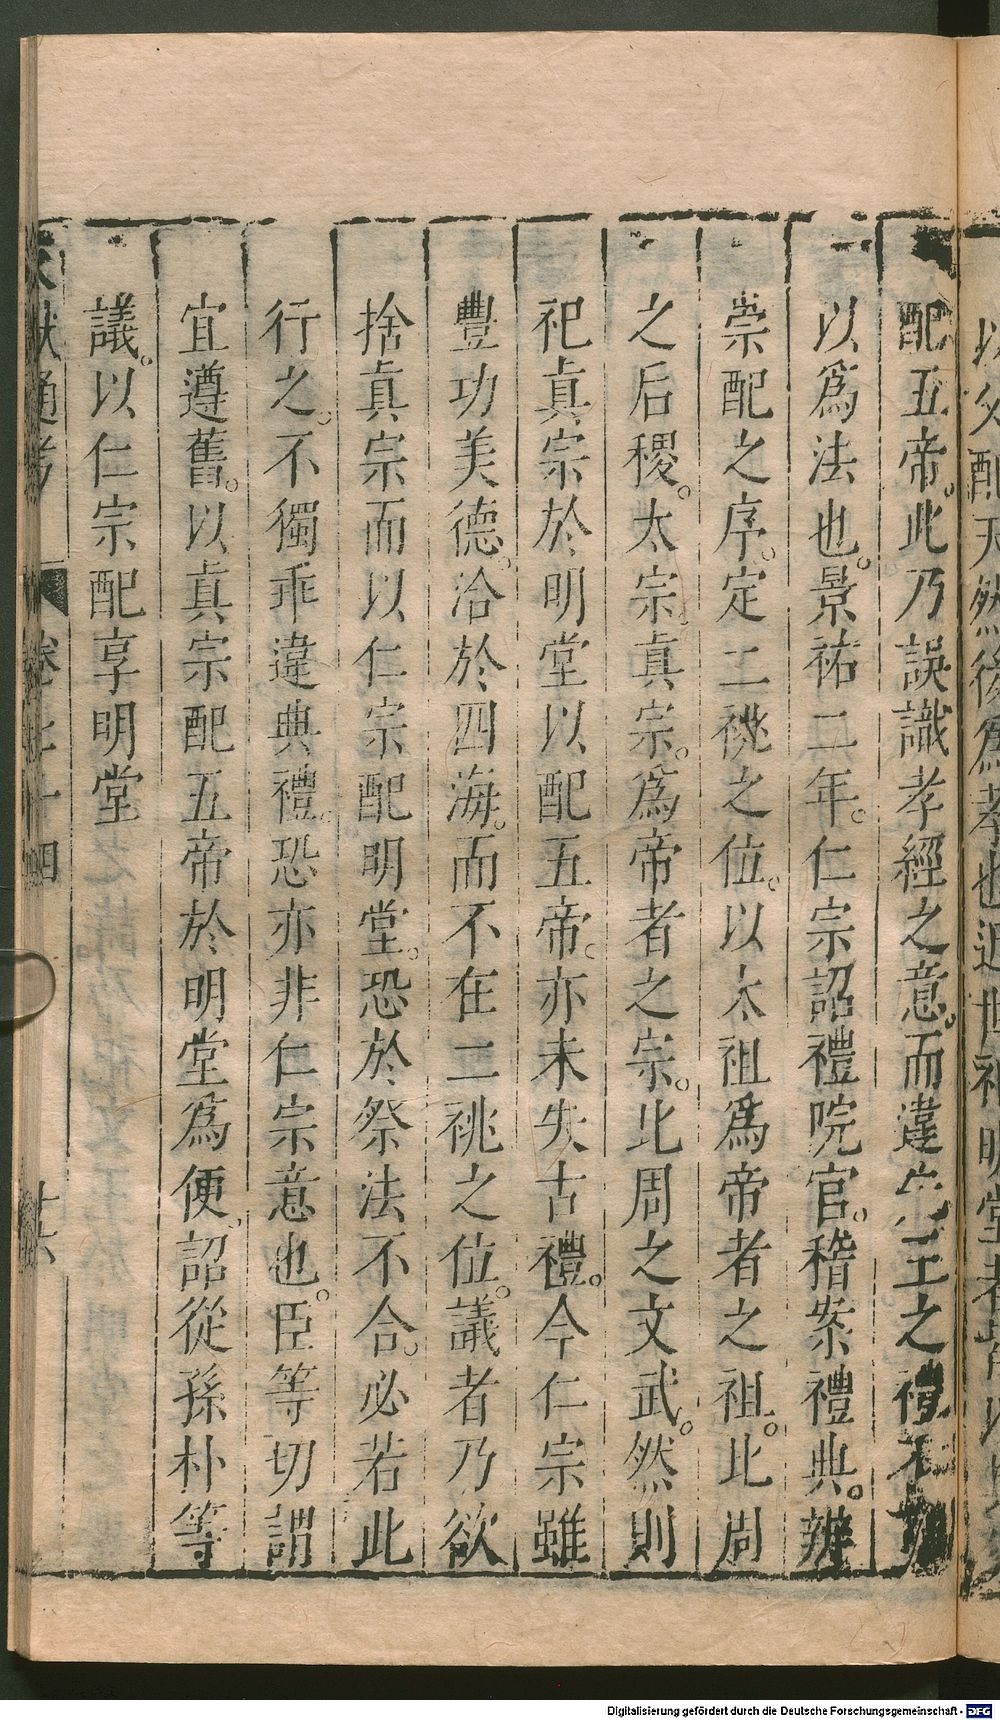 以父配天然後爲孝也近世祀明堂者皆以其父
配五帝。此乃誤識孝經之意。而違先王之禮不可
以爲法也。景祐二年。仁宗詔禮院官。稽案禮典。辨
崇配之序。定二祧之位。以太祖爲帝者之祖。此周
之后稷。太宗。眞宗。爲帝者之宗。此周之文武。然則
祀眞宗於明堂以配五帝。亦未失古禮。今仁宗雖
豐功美德。洽於四海。而不在二祧之位。議者乃欲
捨眞宗而以仁宗配明堂。恐於祭法不合。必若此
行之。不獨乖違典禮。恐亦非仁宗意也。臣等切謂
宜遵舊。以眞宗配五帝於明堂爲便。詔從孫朴等
議。以仁宗配享明堂
文獻通考
卷七十四
廿六
Digitalisierung gefördert durch die Deutsche Forschungsgemeinschaft - DFG